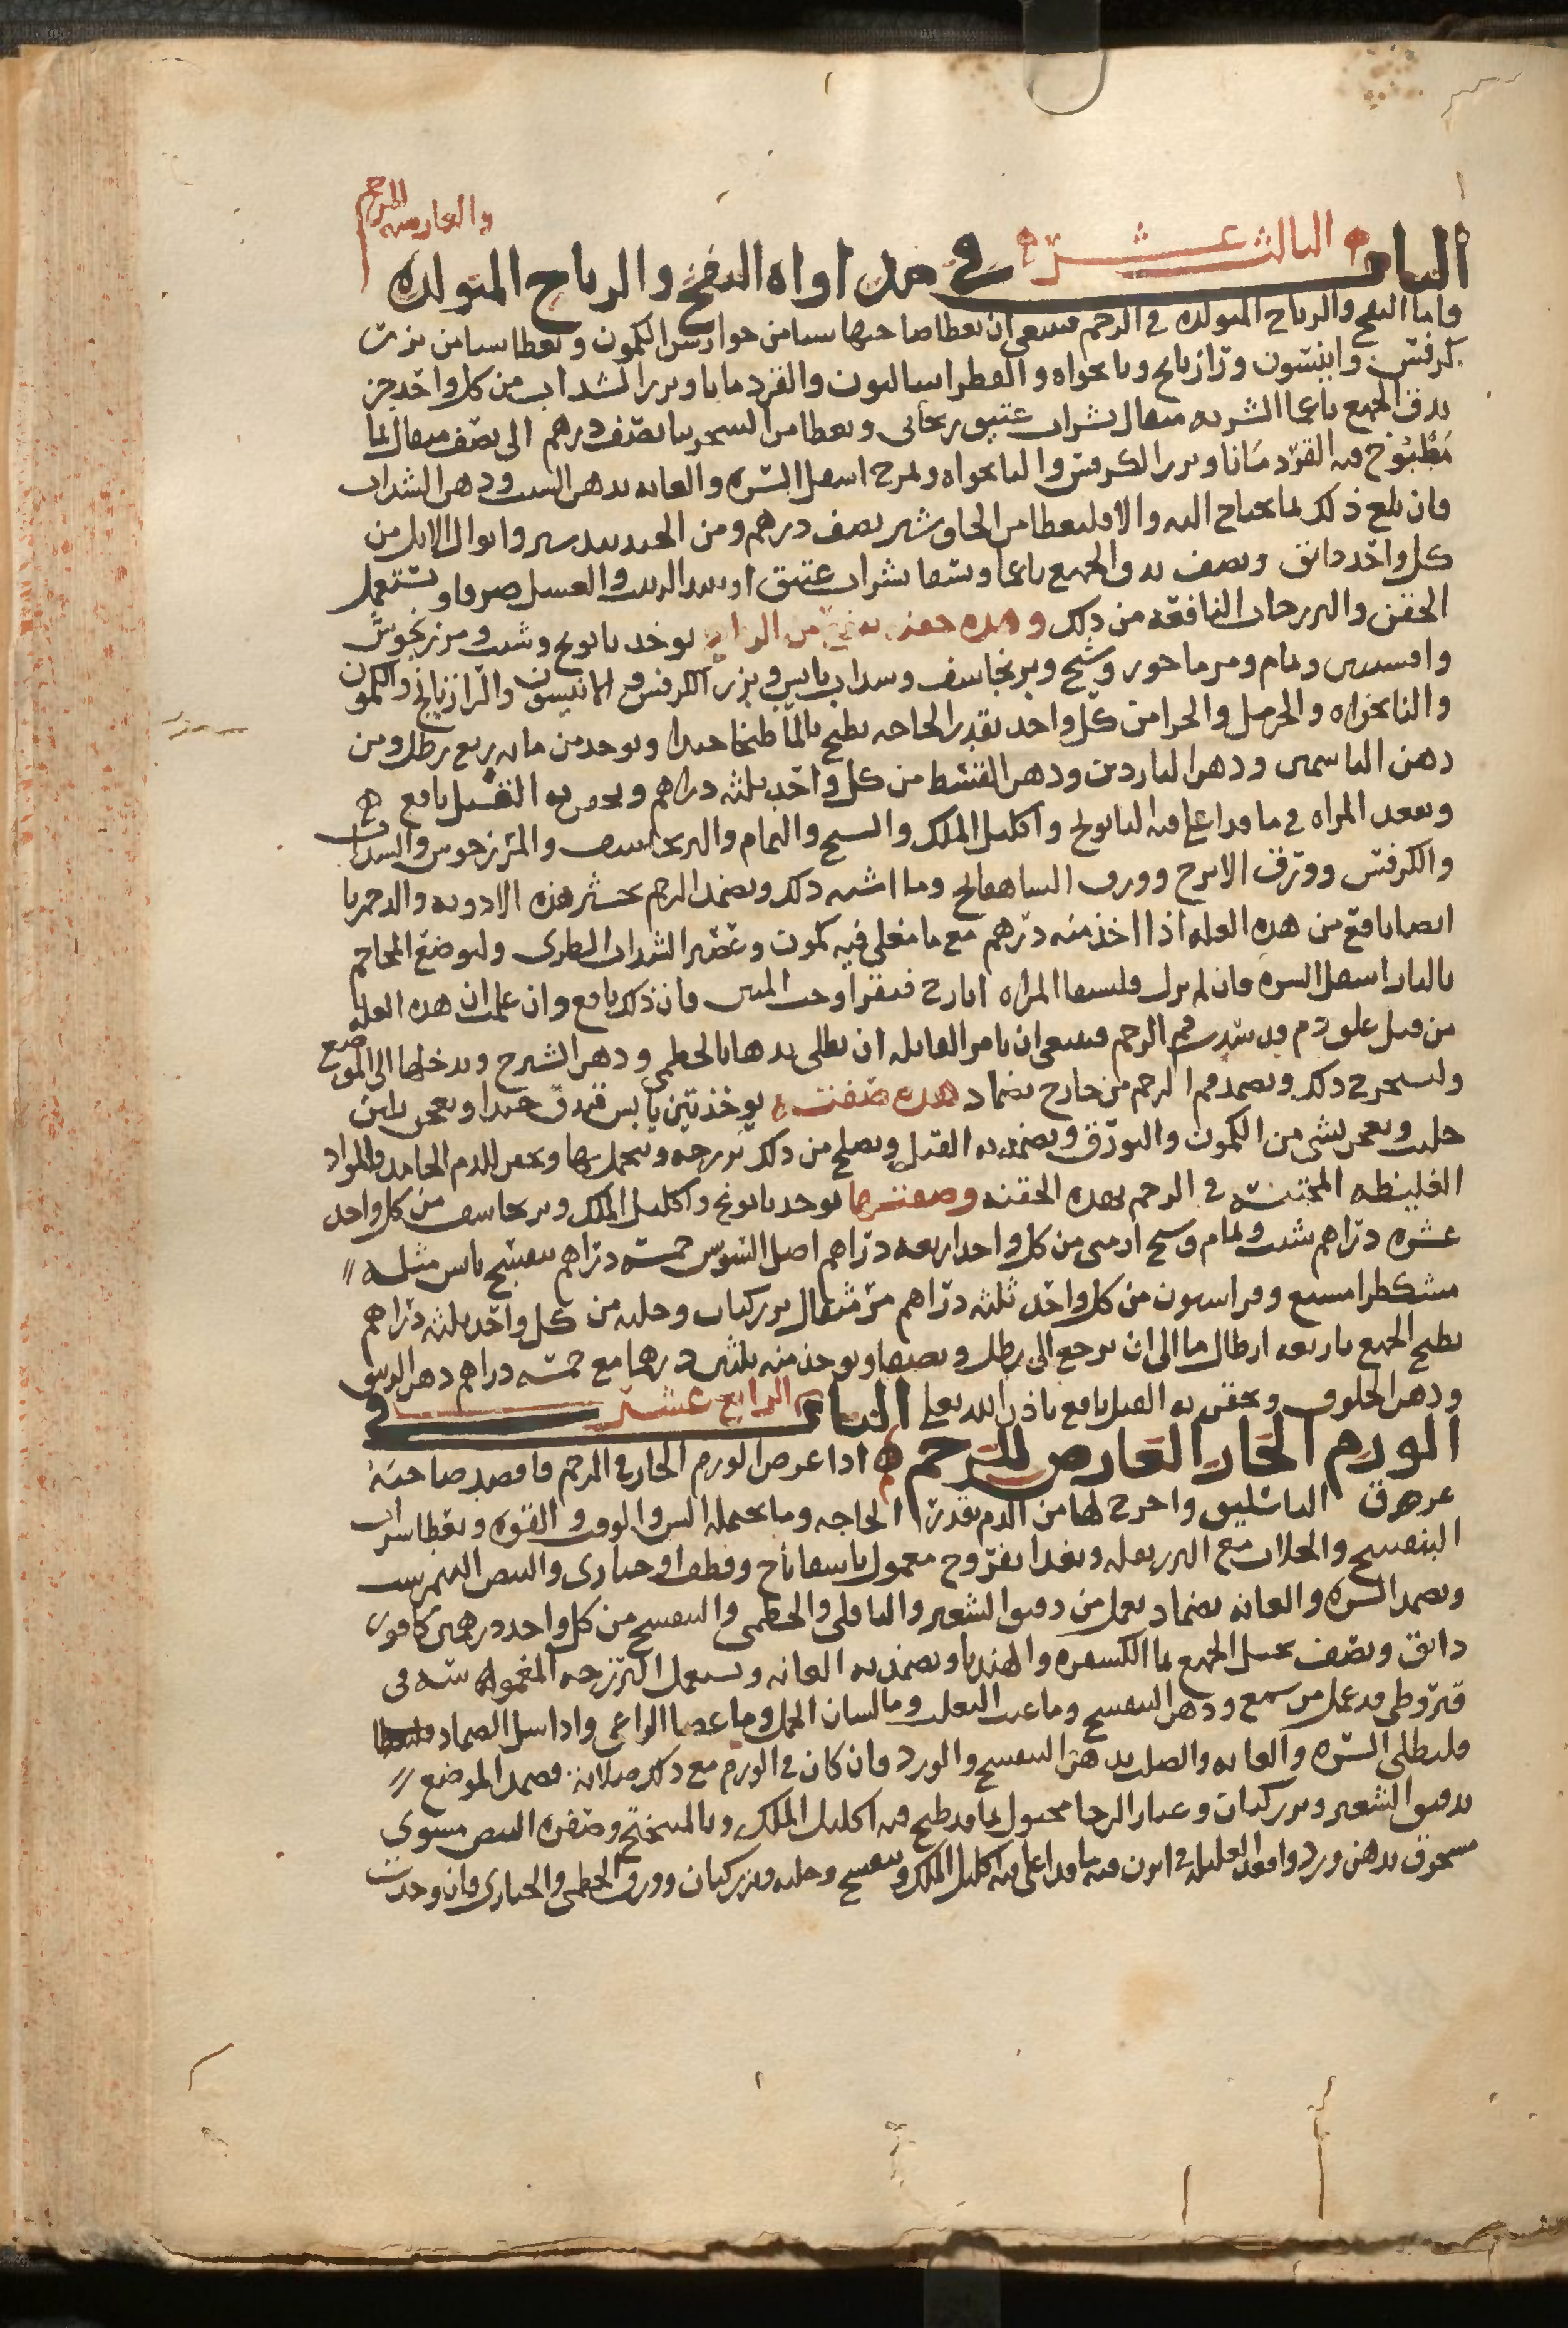 والعارضه للرحم
الباب الثالث عشر في مداواه النفخ والرياح المتولده
واما النفخ والرياح المتولده في الرحم فينبغي ان يعطا صاحبها شيا من جوارش الكمون ويعطا شيا من بزر
كرفس وانيسون ورازيانج ونانخواه والفطراساليون والقردمانا وبزر السداب من كل واحد جز
يدق الجميع ناعما الشربه مثقال بشراب عتيق ريحاني ويعطا من السجزنيا نصف درهم الى نصف مثقال بما
مطبوخ فيه القردمانا وبزر الكرفس والنانخواه ولمرح اسفل السره والعانه بدهن السبت ودهن السداب
فان بلغ ذلك ما يحتاج اليه والا فليعطا من الجاوشير نصف درهم ومن الجندبيدستر وابوال الابل من
كل واحد دانق ونصف يدق الجميع ناعما ويسقا بشراب عتيق او نبيذ الزبيب والعسل صرفا ويستعمل
الحقن والفرزجات النافعه من ذلك وهذه حقنه يوخذ بابونج وشبت ومرزنجوش
وافسنتين ونمام ومرماحور وشيح وبرنجاسف وسداب يابس وبزر الكرفس والانيسون والرازيانج والكمون
والنانخواه والحرمل والحزا من كل واحد بقدر الحاجه يطبخ بالما طبخا جيدا ويوخذ من مايه ربع رطل ومن
دهن الياسمين ودهن الناردين ودهن القسط من كل واحد ثلثه دراهم ويحقن به القبل نافع
وتقعد المراه في ما قد اغلي فيه البابونج واكليل الملك والشيح والنمام والبرنجاسف والمرزنجوش والسداب
والكرفس وورق الاترج وورق الشاهفانج وما اشبه ذلك ويضمد الرحم بحشيش هذه الادويه والدحمرثا
ايضا نافع من هذه العله اذا اخذ منه درهم مع ما مغلي فيه كمون وعصير السداب الطري وليوضع المحاجم
بالنار اسفل السره فان لم يزل فليسقا المراه ايارج فيقرا وحب المنتن فان ذلك نافع وان علمت ان هذه العله
من قبل علق دم قد سد فم الرحم فينبغي ان تامر القابله ان تطلي يدها بالخطمي ودهن الشيرج وتدخلها الى الموضع
وتستخرج ذلك ويضمد فم الرحم من خارج بضماد هذه صفته يوخذ تين يابس فيدق جيدا ويعجن بلبن
حليب ويعجن بشي من الكمون والبورق ويضمد به القبل ويصلح من ذلك فرزجه ويتحمل بها ويحقن للدم الجامد والمواد
الغليظه المحتبسه في الرحم بهذه الحقنه وصفتها يوخذ بابونج واكليل الملك وبرنجاسف من كل واحد
عشره دراهم شبت ونمام وشيح ارمني من كل واحد اربعه دراهم اصل السوس خمسه دراهم بنفسج يابس مثله
مشكطرامشيع وفراسيون من كل واحد ثلثه دراهم مر مثقال بزر كتان وحلبه من كل واحد ثلثه دراهم
يطبخ الجميع باربعه ارطال ما الى ان يرجع الى رطل ويصفا ويوخذ منه ثلثين درهما مع خمسه دراهم دهن الزنبق
ودهن الخلوق ويحقن به القبل نافع باذن الله تعلى الباب الرابع عشر في
الورم الحار العارض للرحم اذا عرض الورم الحار في الرحم فافصد صاحبته
عرق الباسليق واخرج لها من الدم بقدر الحاجه وما يحتمله السن والوقت والقوه ويعطا شراب
البنفسج والجلاب مع البزربقله ويغذا بفروج معمول باسفاناخ وقطف او خبازى والبيض النيمرشت
ويضمد السره والعانه بضماد يعمل من دقيق الشعير والباقلى والخطمي والبنفسج من كل واحد درهمين كافور
دانق ونصف يحبل الجميع بما الكسفره والهندبا ويضمد به العانه ويستعمل الفرزجه المغموسه في
قيروطي قد عمل من شمع ودهن البنفسج وما عنب الثعلب وما لسان الحمل وما عصا الراعي واذا شيل الضماد
فليطلى السره والعانه والصلب بدهن البنفسج والورد فان كان في الورم مع ذلك صلابه فضمد الموضع
بدقيق الشعير وبزر كتان وغبار الرحا محبول بما قد طبخ فيه اكليل الملك وبالميبختج وصفره البيض مشوي
مسحوق بدهن ورد واقعد العليله في ابزن فيه ما قد اغلي فيه اكليل الملك وبنفسج وحلبه وبزر كتان وورق الخطمي والخبازى فان وجدت